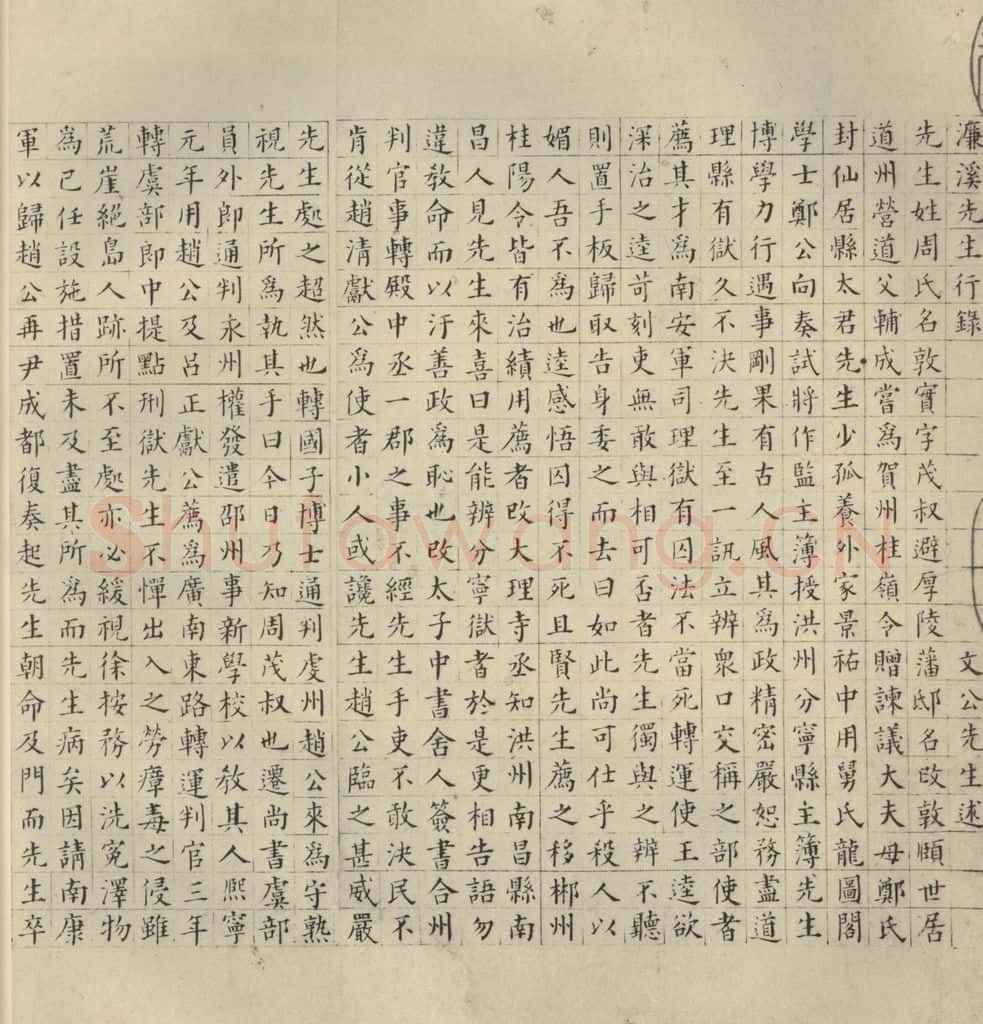 濂溪先生行錄 文公先生述
先生姓周氏名敦實字茂叔避厚陵藩邸名改敦頤世居
道州營道父輔成嘗爲賀州桂嶺令贈諫議大夫母鄭氏
封仙居縣太君先生少孤養外家景祐中用舅氏龍圖閣
學士鄭公向奏試將作監主簿授洪州分寧縣主簿先生
博學力行遇事剛果有古人風其爲政精密嚴恕務盡道
理縣有獄久不決先生至一訊立辨衆口交稱之部使者
薦其才爲南安軍司理獄有囚法不當死轉運使王逵欲
深治之逵苛刻吏無敢與相可否者先生獨與之辨不聽
則置手板歸取告身委之而去曰如此尚可仕乎殺人以
媚人吾不爲也逵感悟囚得不死且賢先生薦之移郴州
桂陽令皆有治績用薦者改大理寺丞知洪州南昌縣南
昌人見先生來喜曰是能辨分寧獄者於是更相告語勿
違教命而以汙善政爲恥也改太子中書舍人簽書合州
判官事轉殿中丞一郡之事不經先生手吏不敢決民不
肯從趙清獻公爲使者小人或讒先生趙公臨之甚威嚴
先生處之超然也轉國子博士通判虔州趙公來爲守熟
視先生所爲執其手曰今日乃知周茂叔也遷尚書虞部
員外郎通判永州權發遣邵州事新學校以教其人熙寧
元年用趙公及呂正獻公薦爲廣南東路轉運判官三年
轉虞部郎中提點刑獄先生不憚出入之勞瘴毒之侵雖
荒崖絕島人跡所不至處亦必緩視徐按務以洗冤澤物
爲己任設施措置未及盡其所爲而先生病矣因請南康
軍以歸趙公再尹成都復奏起先生朝命及門而先生卒
Shufawang.CN